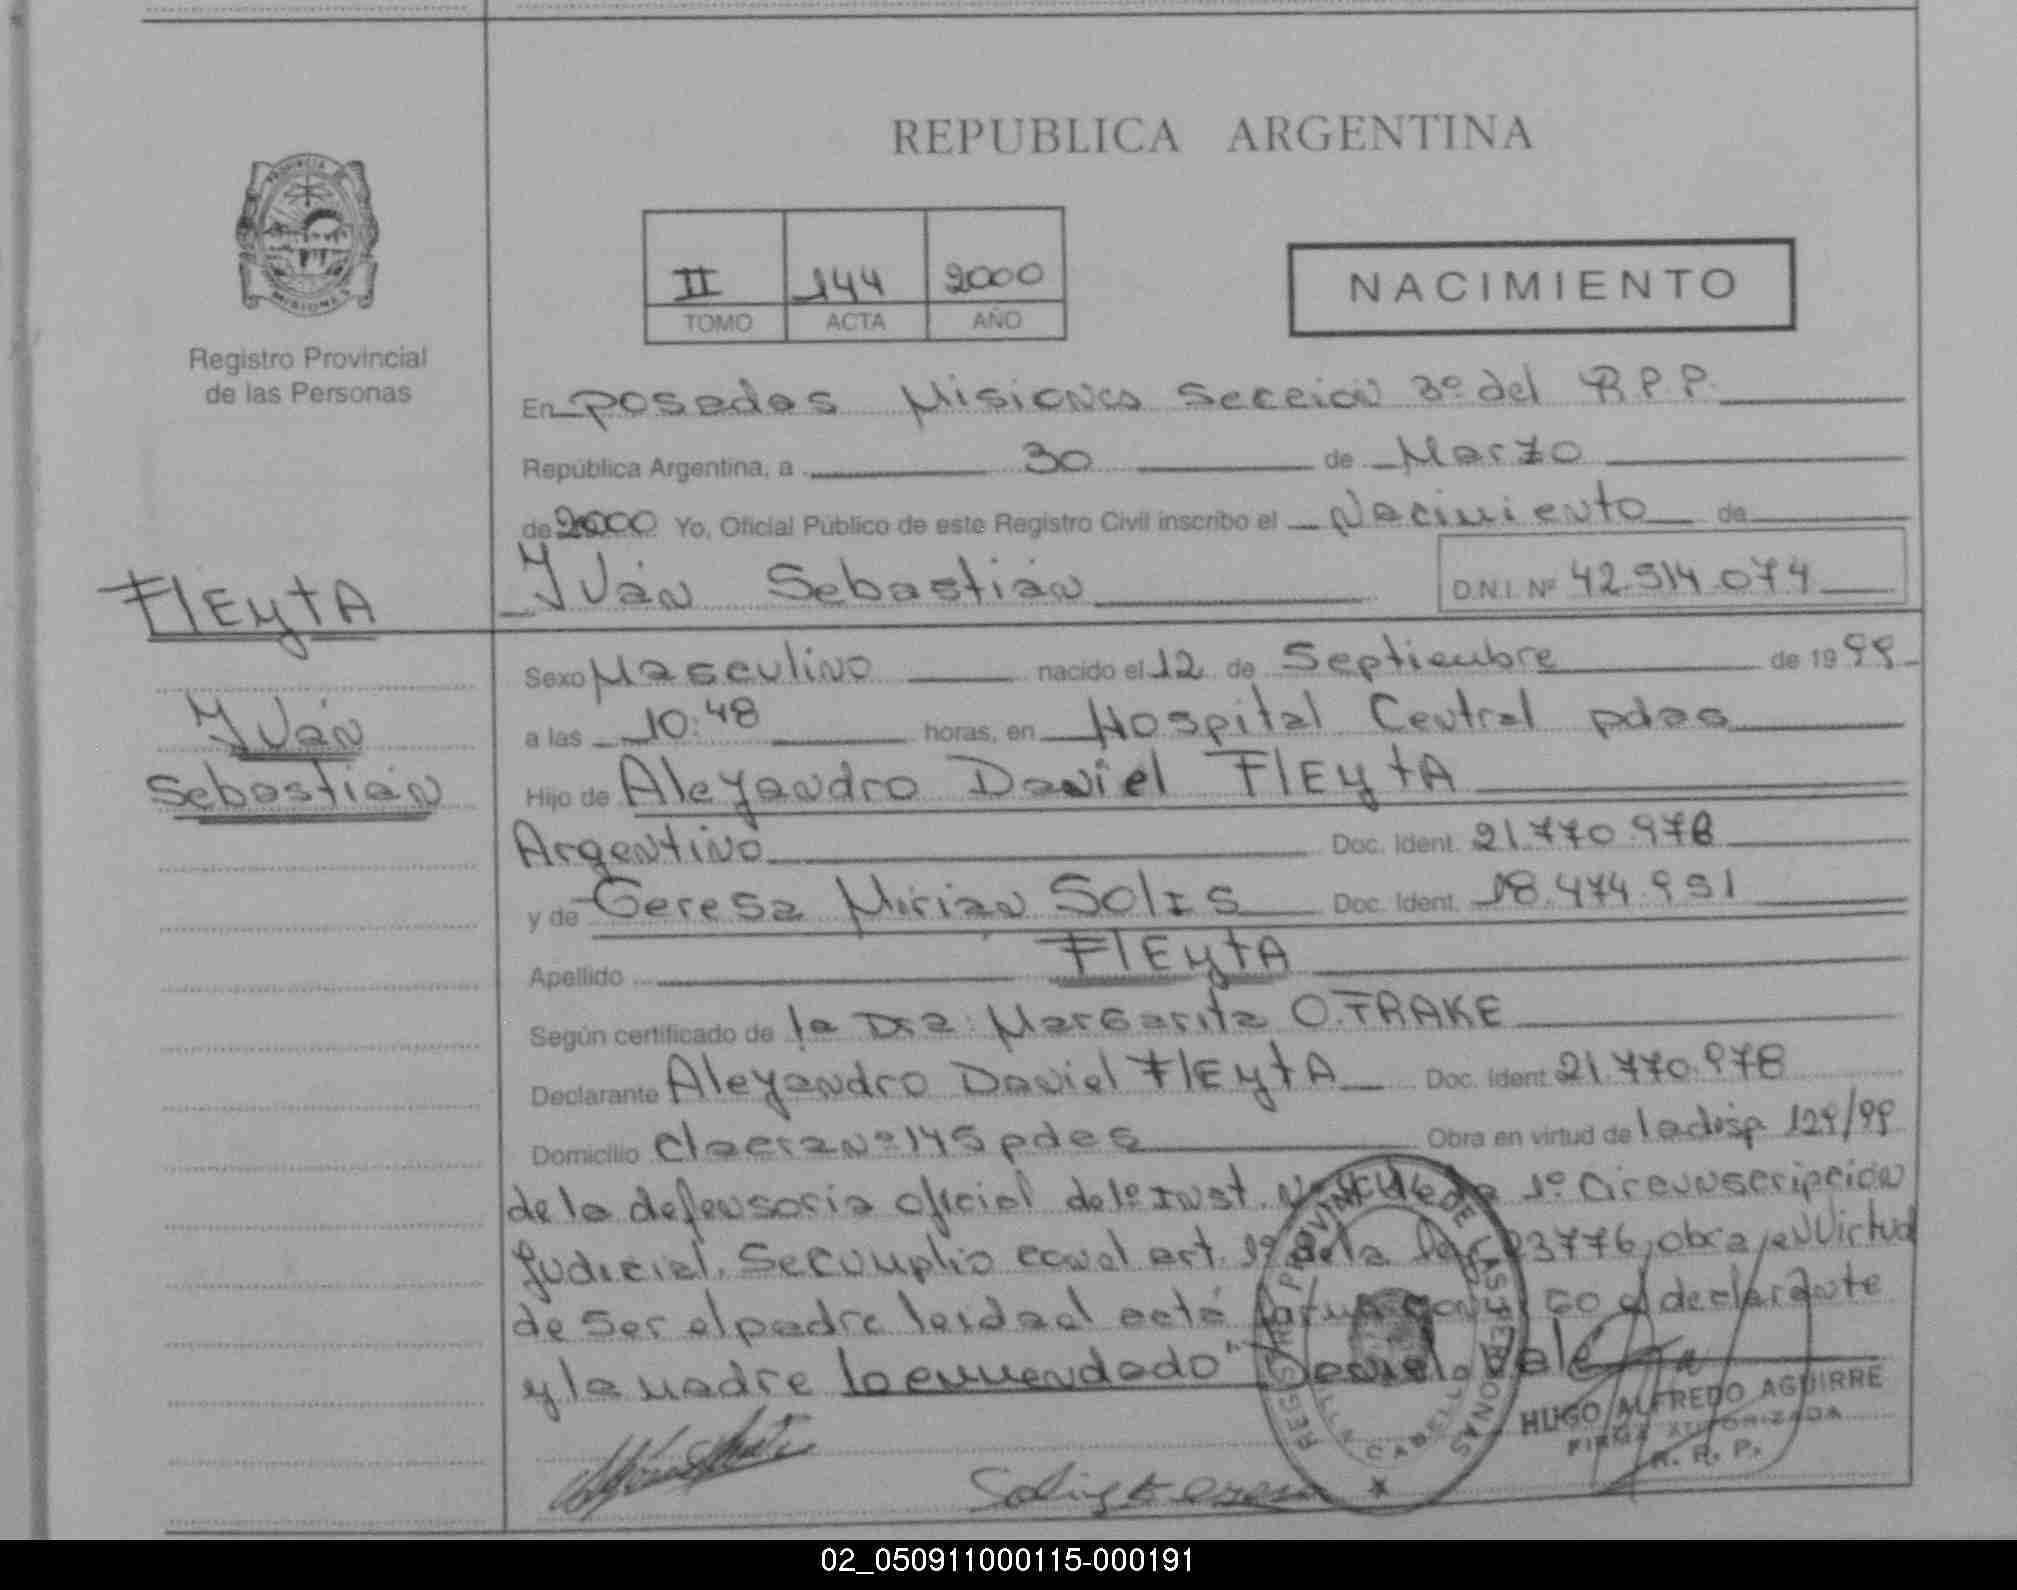 REPUBLICA ARGENTINA
PROVINCIA
MISIONES
Registro Provincial
de las Personas
II 144 2000
TOMO ACTA AÑO
NACIMIENTO
En posadas Misiones Seccion 3º del R.P.P.
República Argentina, a 30 de Marzo
de 2000 Yo, Oficial Público de este Registro Civil inscribo el Nacimiento de
Iván Sebastián D.N.I. Nº 42.514.074
FlEytA
Iván
Sebastián
Sexo Masculino nacido el 12 de Septiembre de 1999
a las 10:48 horas, en Hospital Central pdas
Hijo de Alejandro Daniel FlEytA
Argentino Doc. Ident. 21.770.978
y de Teresa Mirian SolIs Doc. Ident. 18.474.951
Apellido FlEytA
Según certificado de la Dra. Margarita O. FRAKE
Declarante Alejandro Daniel FlEytA Doc. Ident. 21.770.978
Domicilio chacra Nº 145 pdas Obra en virtud de la disp 129/99
de la defensoria oficial de 1º Inst. 1º Circunscripción
Judicial. Se cumplio con el art. 1º de la ley 23776, obra en Virtud
de ser el padre la sdad. esta el declarante
y la madre lo enmendado "Daniel" Vale
REGISTRO PROVINCIAL DE LAS PERSONAS
HUGO ALFREDO AGUIRRE
FIRMA AUTORIZADA
R. R. P.
02_050911000115-000191